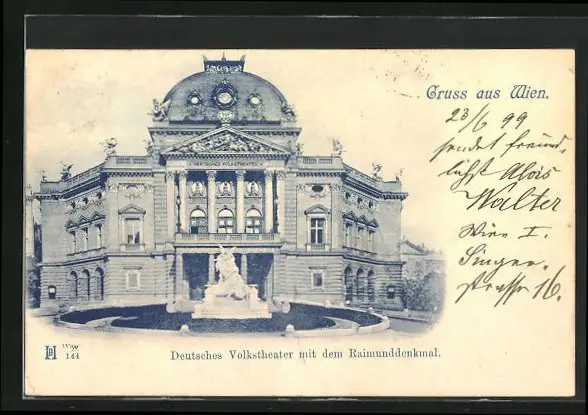 DEUTSCHES VOLKSTHEATER
Gruss aus Wien.
23/6 99
sendet freund-
lichst Alois
Walter
Wien I.
Singer-
strasse 16.
Wien
144
Deutsches Volkstheater mit dem Raimunddenkmal.